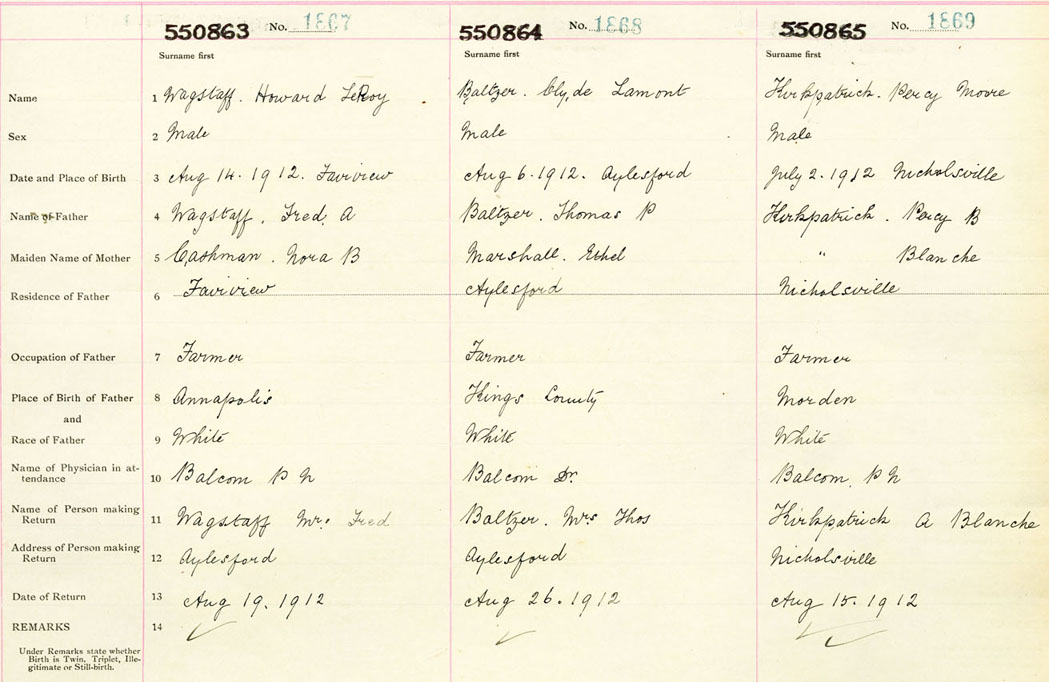 550863 No. 1867 550864 No. 1868 550865 No. 1869
Surname first Surname first Surname first
Name 1 Wagstaff. Howard LeRoy Baltzer. Clyde Lamont Kirkpatrick. Percy Moore
Sex 2 Male Male Male
Date and Place of Birth 3 Aug 14. 1912. Fairview Aug 6. 1912. Aylesford July 2. 1912 Nicholsville
Name of Father 4 Wagstaff. Fred A Baltzer. Thomas P Kirkpatrick. Percy B
Maiden Name of Mother 5 Cashman. Nora B Marshall. Ethel " Blanche
Residence of Father 6 Fairview Aylesford Nicholsville
Occupation of Father 7 Farmer Farmer Farmer
Place of Birth of Father 8 Annapolis Kings County Morden
and
Race of Father 9 White White White
Name of Physician in at-
tendance 10 Balcom P N Balcom Dr. Balcom. P N
Name of Person making
Return 11 Wagstaff Mrs Fred Baltzer. Mrs Thos Kirkpatrick A Blanche
Address of Person making
Return 12 Aylesford Aylesford Nicholsville
Date of Return 13 Aug 19. 1912 Aug 26. 1912 Aug 15. 1912
REMARKS 14
Under Remarks state whether
Birth is Twin, Triplet, Ille-
gitimate or Still-birth.